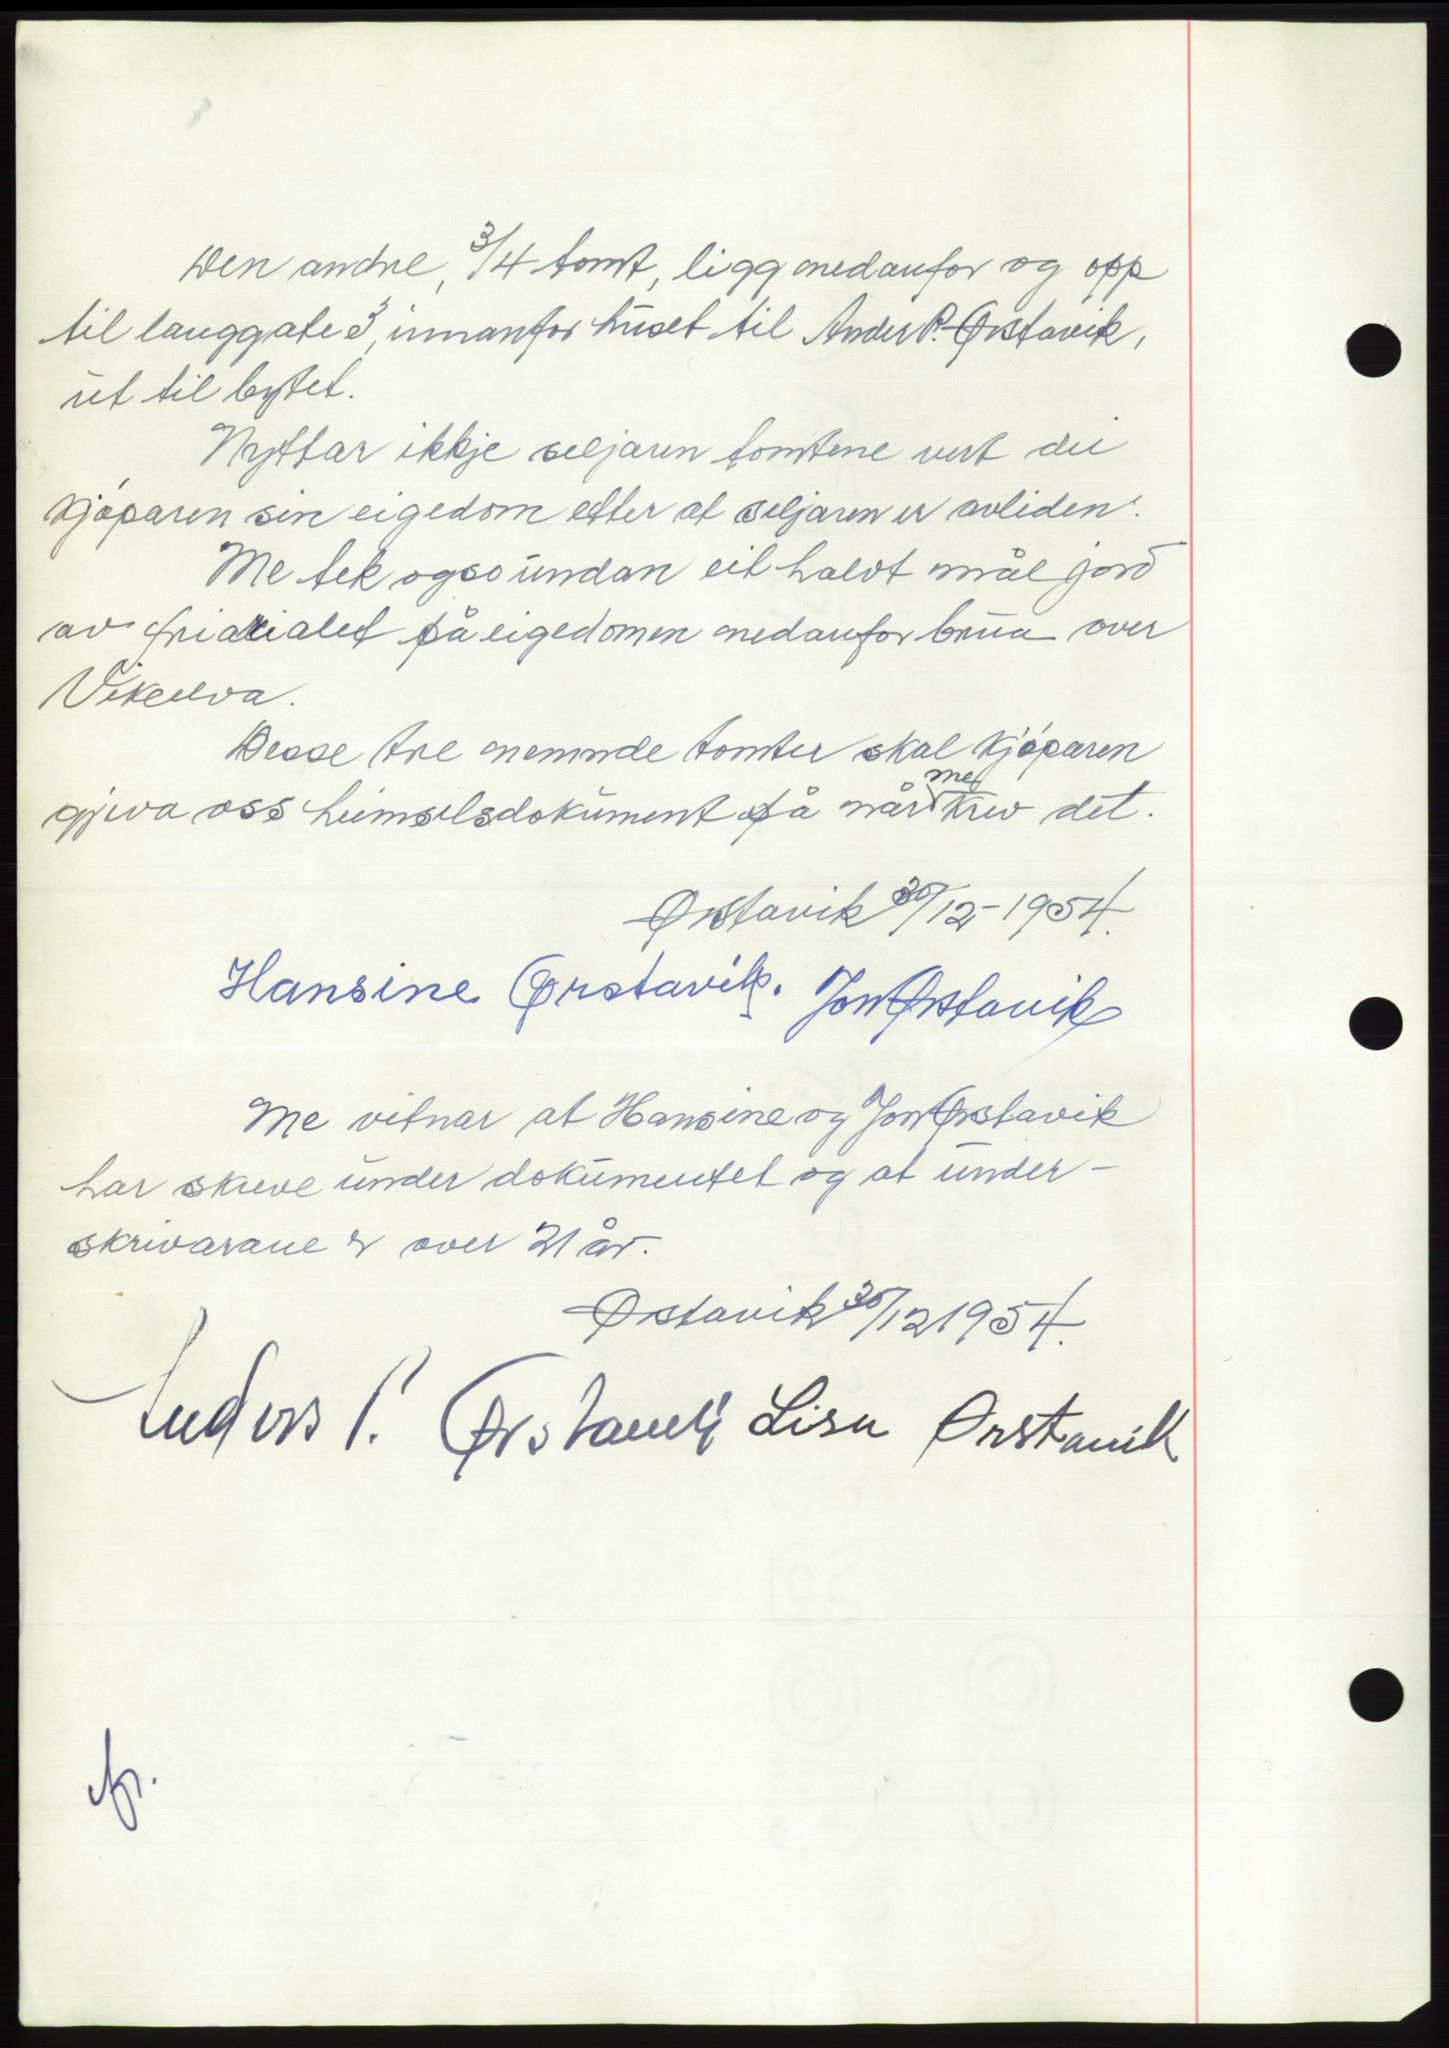 Den andre, 3/4 tomt, ligg nedanfor og opp
til langgate 3, innanfor huset til Anders P. Ørstavik,
ut til bytet.
Nyttar ikkje seljaren tomtene vert dei
kjøparen sin eigedom etter at seljaren er avliden.
Me tek ogso undan eit halvt mål jord
av på eigedomen nedanfor brua over
Vikelva.
Desse tre nemnde tomter skal kjøparen
gjeva oss heimelsdokument på når me krev det.
Ørstavik 30/12-1954.
Hansine Ørstavik. Jon Ørstavik
Me vitnar at Hansine og Jon Ørstavik
har skreve under dokumentet og at under-
skrivarane er over 21 år.
Østavik 30/12 1954.
Anders P. Ørstavik Lisa Ørstavik